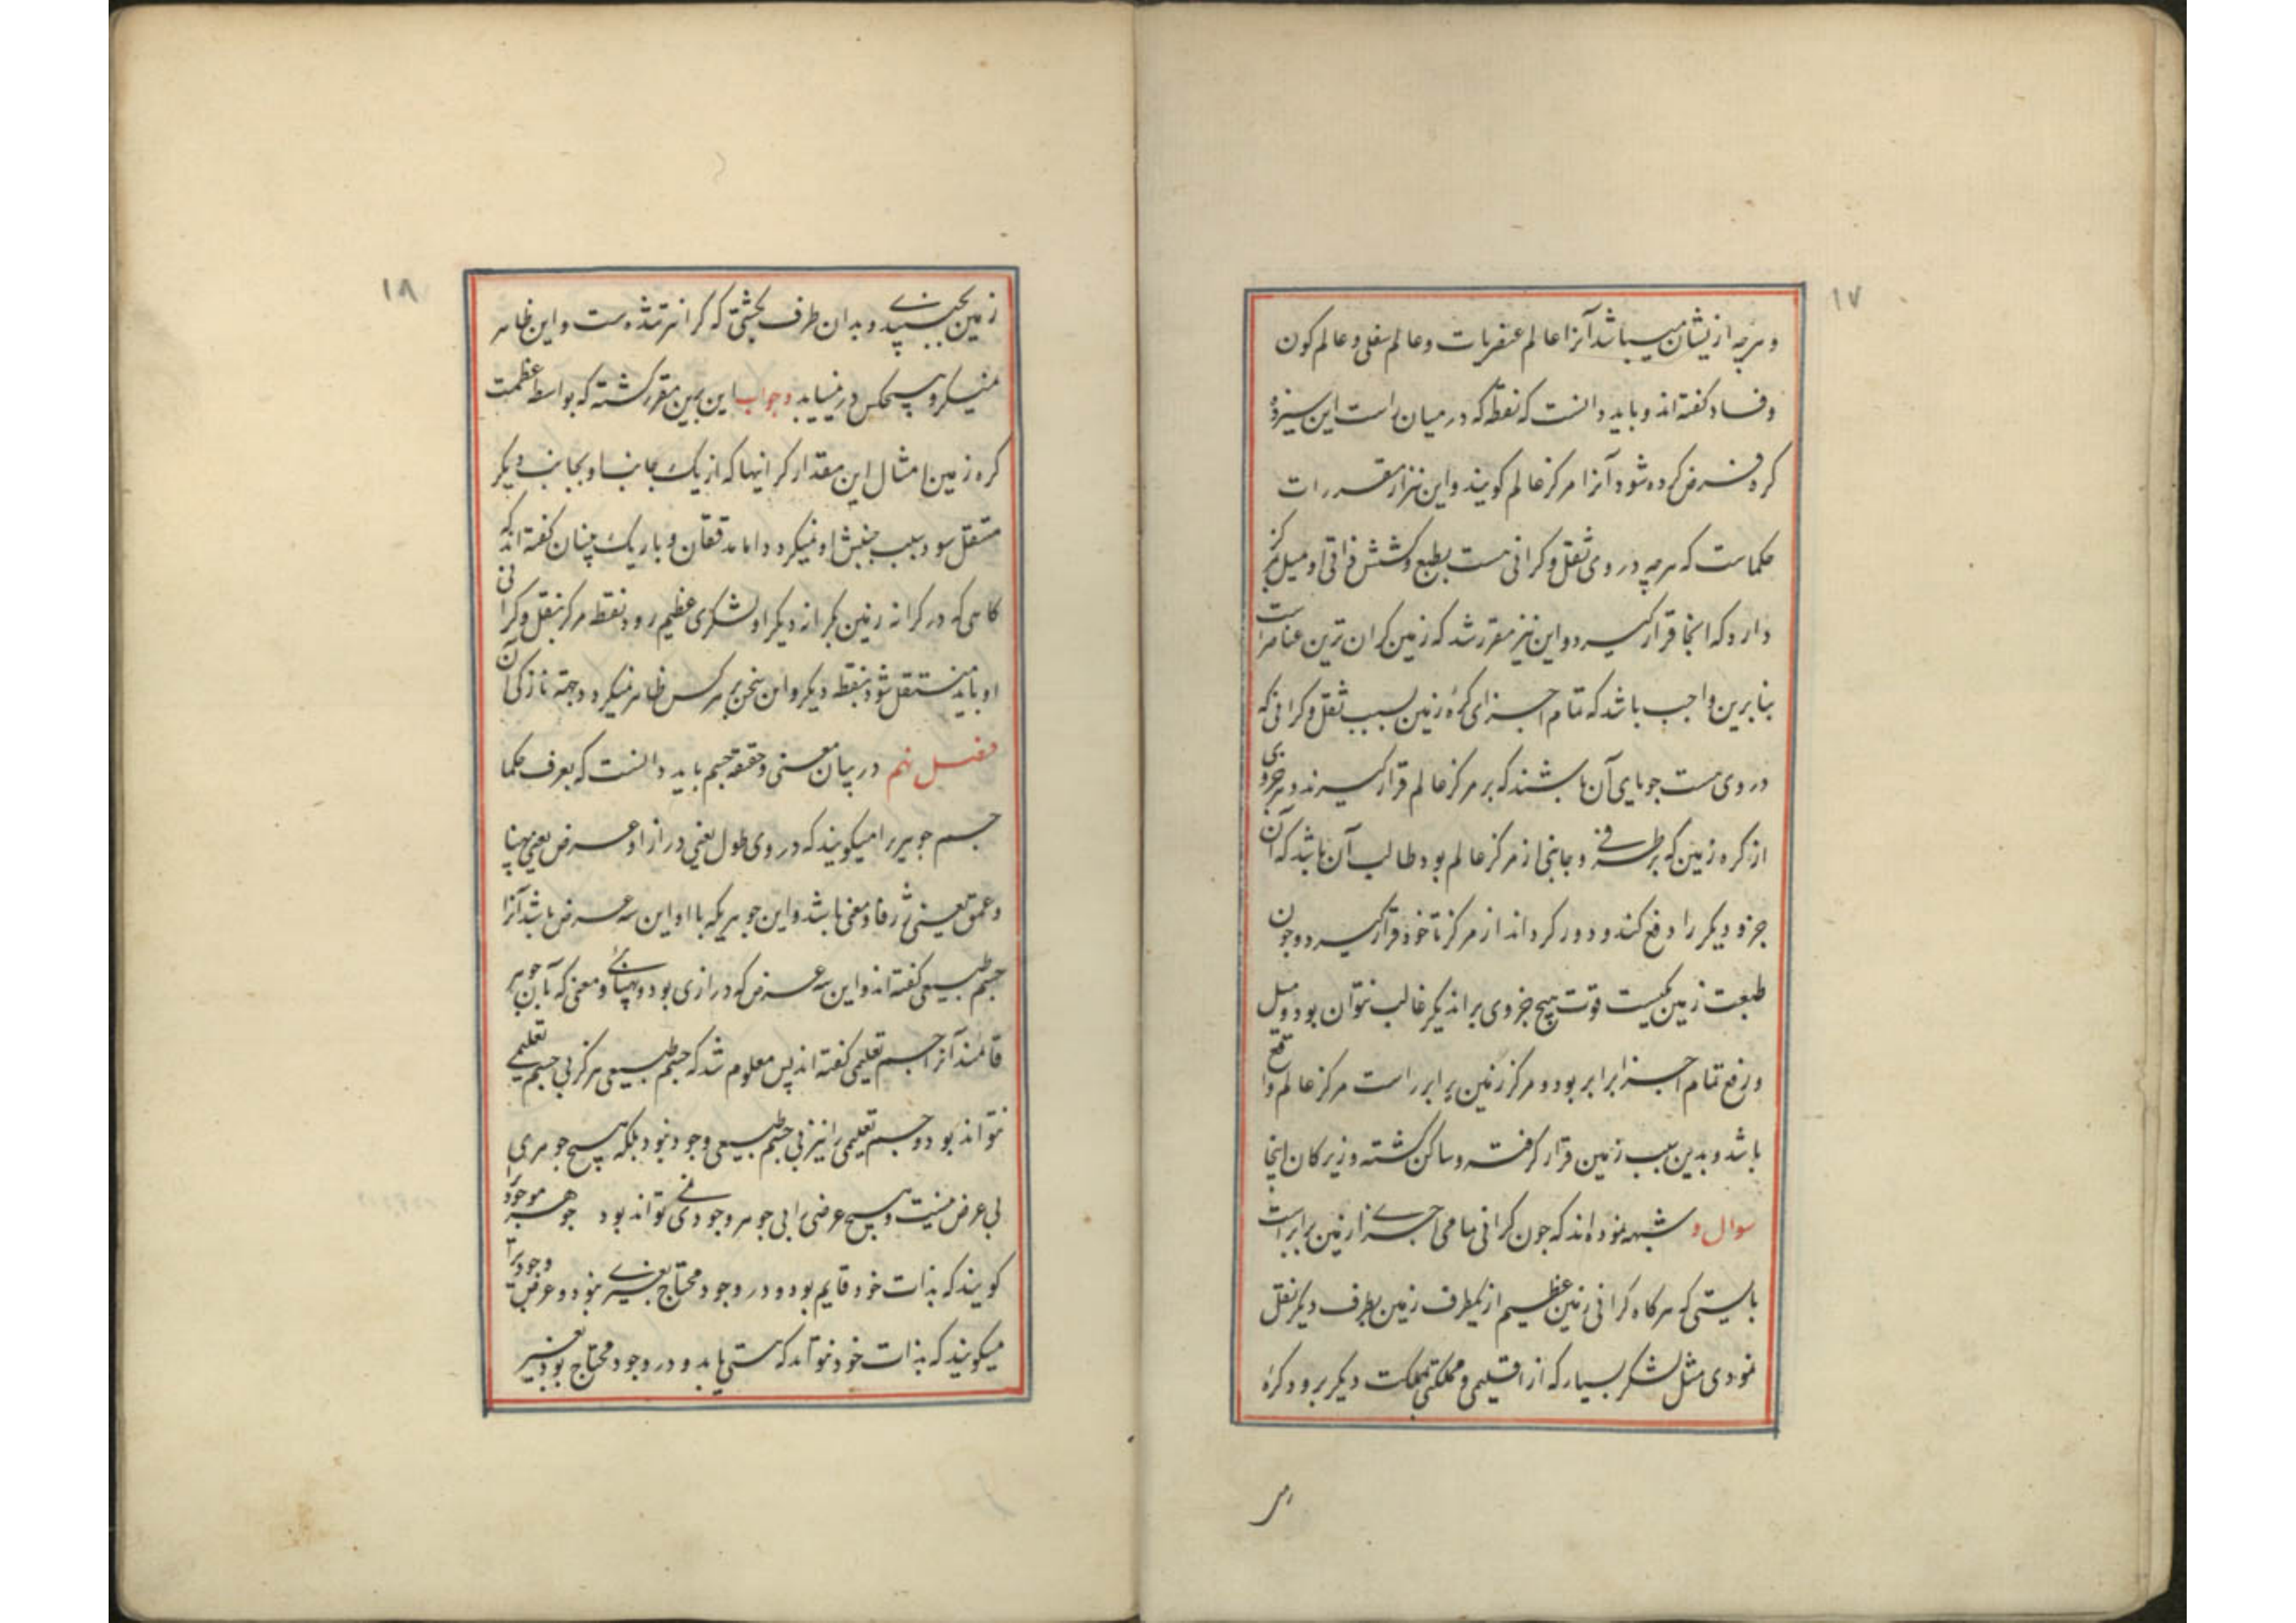 ۱۷
و هرچه ازیشان میباشد آنرا عالم عنصریات و عالم سفلی و عالم کون
و فساد کفته اند و باید دانست که نقطه که در میان راست این سیزده
کره فرض کرده شود آنرا مرکز عالم کویند و این نیز از مقررات
حکماست که هرچه در وی ثقل و کرانی هست بطبع و کشش ذاتی او میل بمرکز
دارد که انجا قرار کیرد و این نیز مقرر شد که زمین کران ترین عناصر است
بنابرین واجب باشد که تمام اجزای کرهٔ زمین بسبب ثقل و کرانی که
در وی هست جویای آن باشند که بر مرکز عالم قرار کیرند و هر جزوی
از کره زمین که بر طرفی و جانبی از مرکز عالم بود طالب آن باشد که آن
جزو دیکر را دفع کند و دور کرداند از مرکز تا خود قرار کیرد و چون
طبیعت زمین یکیست قوت هیچ جزوی بر اندیکر غالب نتوان بود و میل
و رفع تمام اجزا برابر بود و مرکز زمین برابر راست مرکز عالم واقع
باشد و بدین سبب زمین قرار کرفته و ساکن کشته و زیرکان اینجا
سوال و شبهه نموده اند که چون کرانی تمامی اجزای زمین برابر است
بایستی که هر کاه کرانی زمین عظیم از یکطرف زمین بطرف دیکر نقل
نمودی مثل لشکر بسیار که از اقلیمی و مملکتی بمملکت دیکر برود کرهٔ
زمین بجنبیدی و بدان طرف بکشتی که کرانتر شده است و این ظاهر
۱۸
زمین بجنبیدی و بدان طرف بکشتی که کرانتر شده است و این ظاهر
نمیکرد و هیچکس در نمییابد و جواب این برین مقرر کشته که بواسطه عظمت
کره زمین امثال این مقدار کرانیها که از یک جانب او بجانب دیکر
منتقل شود سبب جنبش او نمیکردد اما مدققان و باریک بینان کفته اند که
کاهی که در کرانه زمین بکرانه دیکر او لشکری عظیم رود نقطه مرکز ثقل و کرانی
او باید منتقل شود بنقطه دیکر و این سخن بر هر کس ظاهر نمیکردد جهة نازکی آن
فصل نهم در بیان معنی و حقیقة جسم باید دانست که بعرف حکما
جسم جوهر را میکویند که در وی طول یعنی درازا و عرض یعنی پهنا
و عمق یعنی ژرفا و مغی باشد و این جوهر یکه با او این سه عرض باشد آنرا
جسم طبیعی کفته اند و این سه عرض که درازی بود و پهنائی و مغی که بآن جوهر
قائمند آنرا جسم تعلیمی کفته اند پس معلوم شد که جسم طبیعی هرکز بی جسم تعلیمی
نتواند بود و جسم تعلیمی را نیز بی جسم طبیعی وجود نبود بلکه هیچ جوهری
بی عرض نیست و هیچ عرضی را بی جوهر وجودی نی تواند بود جوهر موجود را
کویند که بذات خود قایم بود و در وجود محتاج بغیری نبود و عرض وجود را
میکویند که بذات خود نتواند که هستی یابد و در وجود محتاج بود بغیر